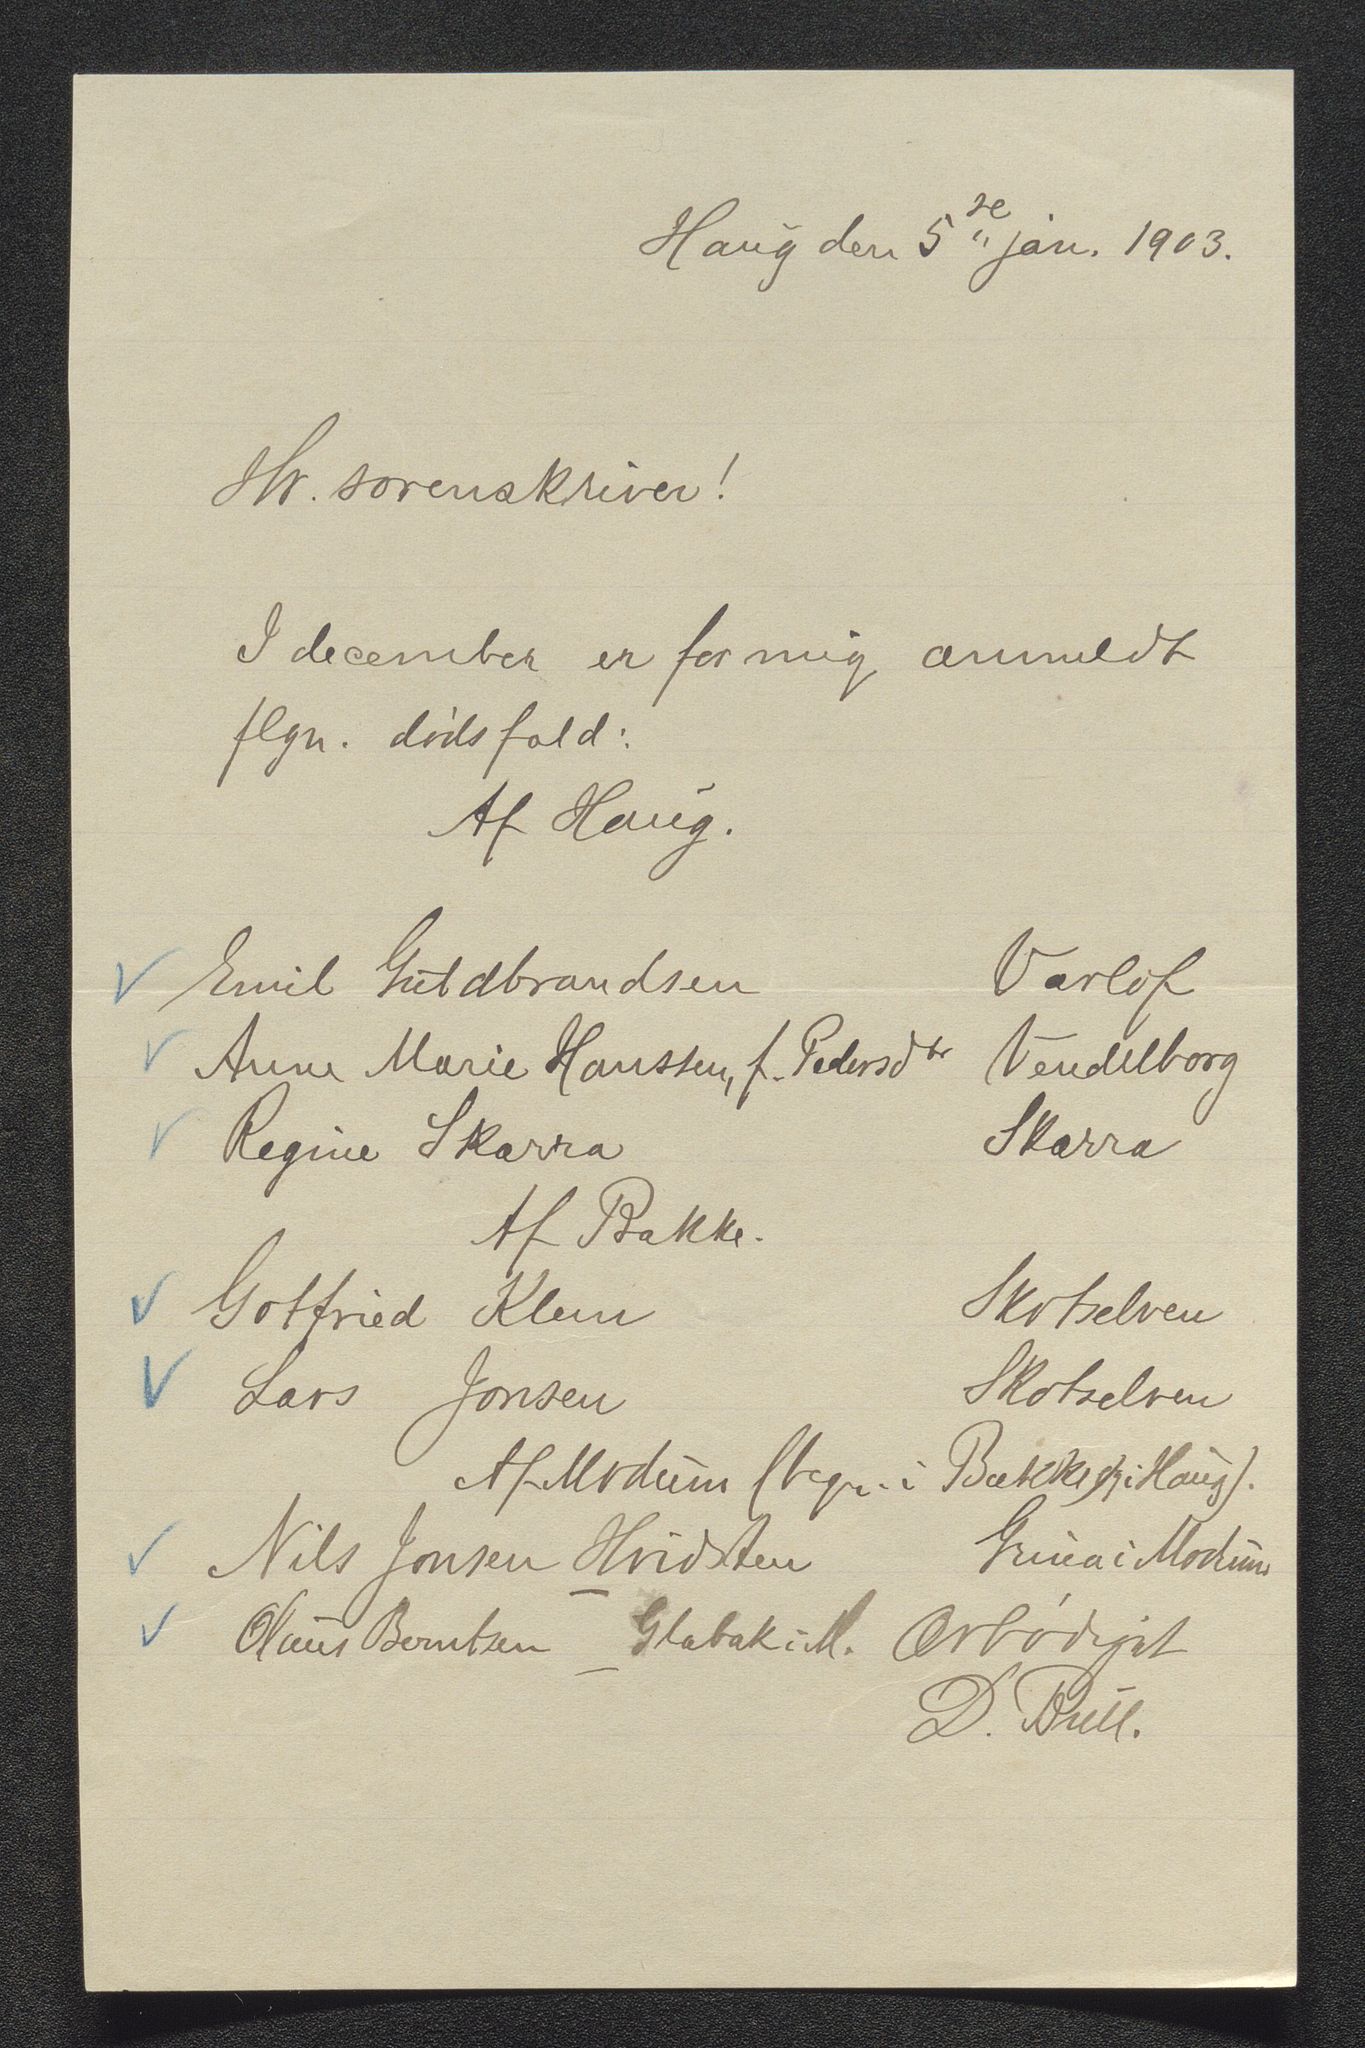 Haug den 5te jan. 1903.
Hr. sorenskriver!
I december er for mig anmeldt
flgn. dødsfald:
Af Haug.
Emil Guldbrandsen Varlof
Anne Marie Hanssen, f. Pedersdtr Vendelborg
Regine Skarra Skarra
Af Bakke.
Gotfried Klem Skotselven
Lars Jonsen Skotselven
Af Modum (begr. i Bakke & i Haug).
Nils Jonsen Hvidsten Gruva i Modum
Olaus Berntsen Glabak i M. Ærbødigst
D. Bull.